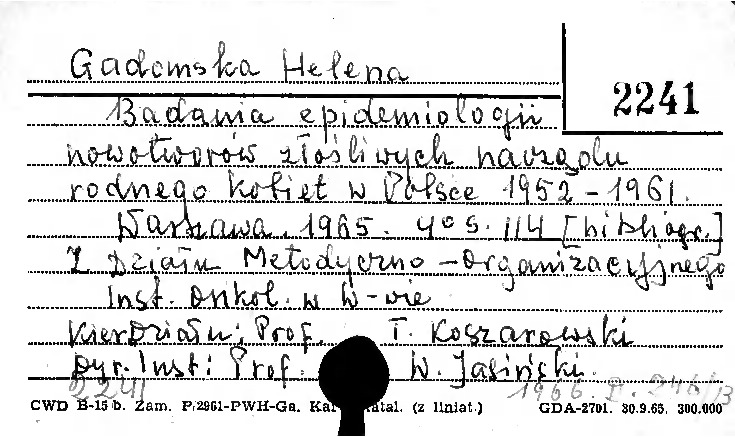 Gadomska Helena
2241
Badania epidemiologii
nowotworów złośliwych narządu
rodnego kobiet w Polsce 1952 - 1961.
Warszawa. 1965. 4° s. 114 [bibliogr.]
Z Działu Metodyczno - Organizacyjnego
Inst. Onkol. w W-wie
Kier. Działu: Prof. T. Koszarowski
Dyr. Inst: Prof. W. Jasiński.
2241
CWD B-15 b. Zam. P/2961-PWH-Ga. Kar. katal. (z liniat.) GDA-2701. 30.9.65. 300.000